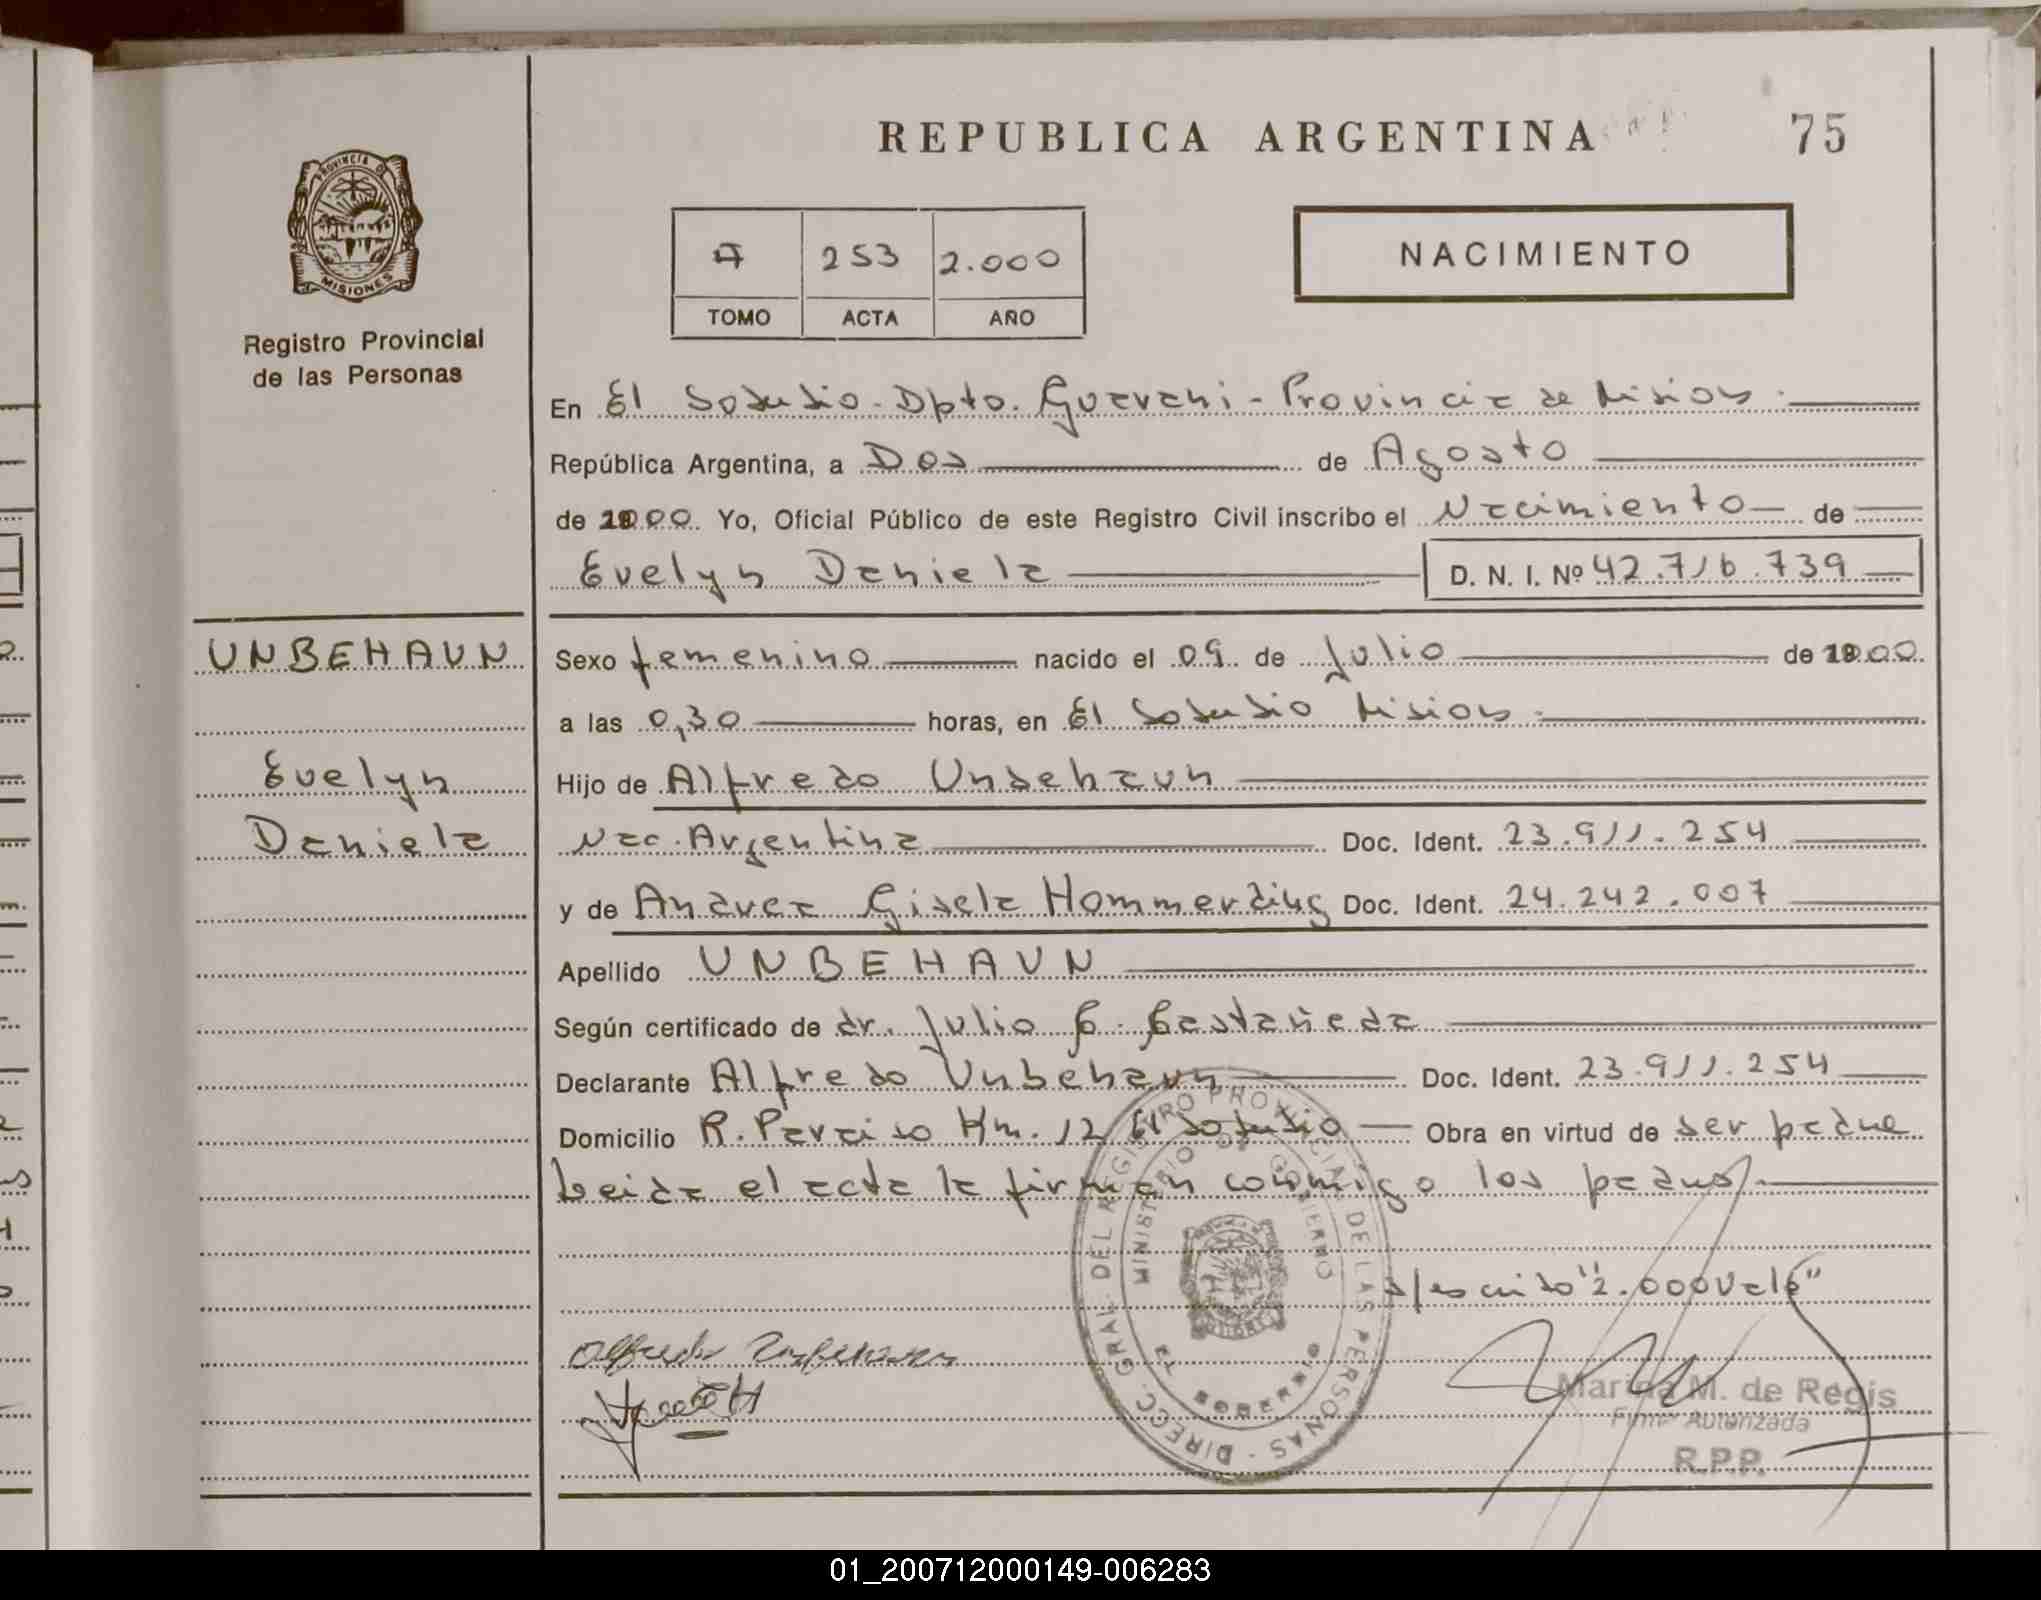 REPUBLICA ARGENTINA
75
PROVINCIA DE
MISIONES
Registro Provincial
de las Personas
253 2.000
TOMO ACTA AÑO
NACIMIENTO
En El Soberbio - Dpto. Guarani - Provincia de Misiones.
República Argentina, a Dos de Agosto
de 2000. Yo, Oficial Público de este Registro Civil inscribo el Nacimiento de
Evelyn Daniela D. N. I. Nº 42.716.739
UNBEHAUN
Evelyn
Daniela
Sexo femenino nacido el 09 de Julio de 2000
a las 0,30 horas, en El Soberbio Misiones.
Hijo de Alfredo Unbehaun
Nac. Argentina Doc. Ident. 23.911.254
y de Andrea Gisela Hommerding Doc. Ident. 24.242.007
Apellido UNBEHAUN
Según certificado de dr. Julio C. Castañeda
Declarante Alfredo Unbehaun Doc. Ident. 23.911.254
Domicilio R. Paraiso Km. 12 El Soberbio Obra en virtud de ser padre
Leida el acta la firman conmigo los padres.
s/escrito "2.000 Vale"
DIRECC. GRAL. DEL REGISTRO PROVINCIAL DE LAS PERSONAS
MINISTERIO DE GOBIERNO
EL SOBERBIO
Alfredo Unbehaun
Marina M. de Regis
Firma Autorizada
R.P.P.
01_200712000149-006283